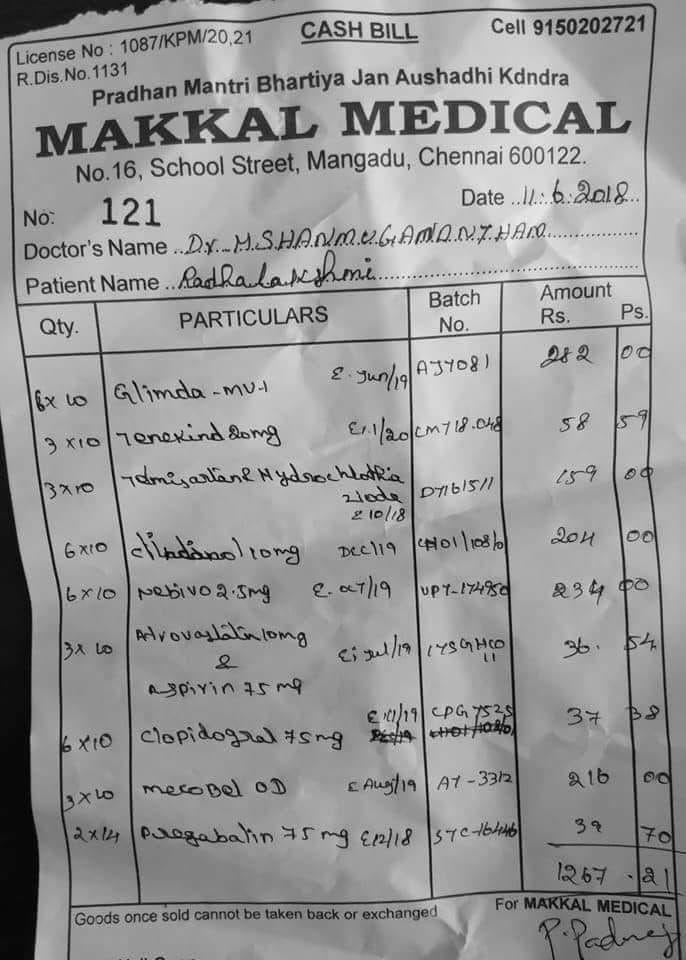 License No : 1087/KPM/20,21 CASH BILL Cell 9150202721
R.Dis.No.1131
Pradhan Mantri Bhartiya Jan Aushadhi Kdndra
MAKKAL MEDICAL
No.16, School Street, Mangadu, Chennai 600122.
No: 121 Date 11.6.2018
Doctor's Name Dr. M.SHANMUGANANTHAM
Patient Name Radhalakshmi
Qty. PARTICULARS Batch No. Amount Rs. Ps.
6x10 Glimda-MV-1 E.Jun/19 AJY081 282 00
3x10 Tenekind 20mg E1.1/20 CM718.048 58 59
3x10 Telmisartan & Hydrochlothia
zode DT161511 159 00
E10/18
6x10 10mg DEC/19 204 00
6x10 Nebivo 2.5mg E.OCT/19 UPT-174950 234 00
3x10 Atrovastatin 10mg E; Jul/19 36. 54
&
Aspirin 75mg
6x10 Clopidogral 75mg CPG7525 37 38
3x10 mecobel OD E Aug/19 AT-3312 216 00
2x14 Pregabalin 75mg E12/18 STC-16446 39 70
1267.21
Goods once sold cannot be taken back or exchanged For MAKKAL MEDICAL